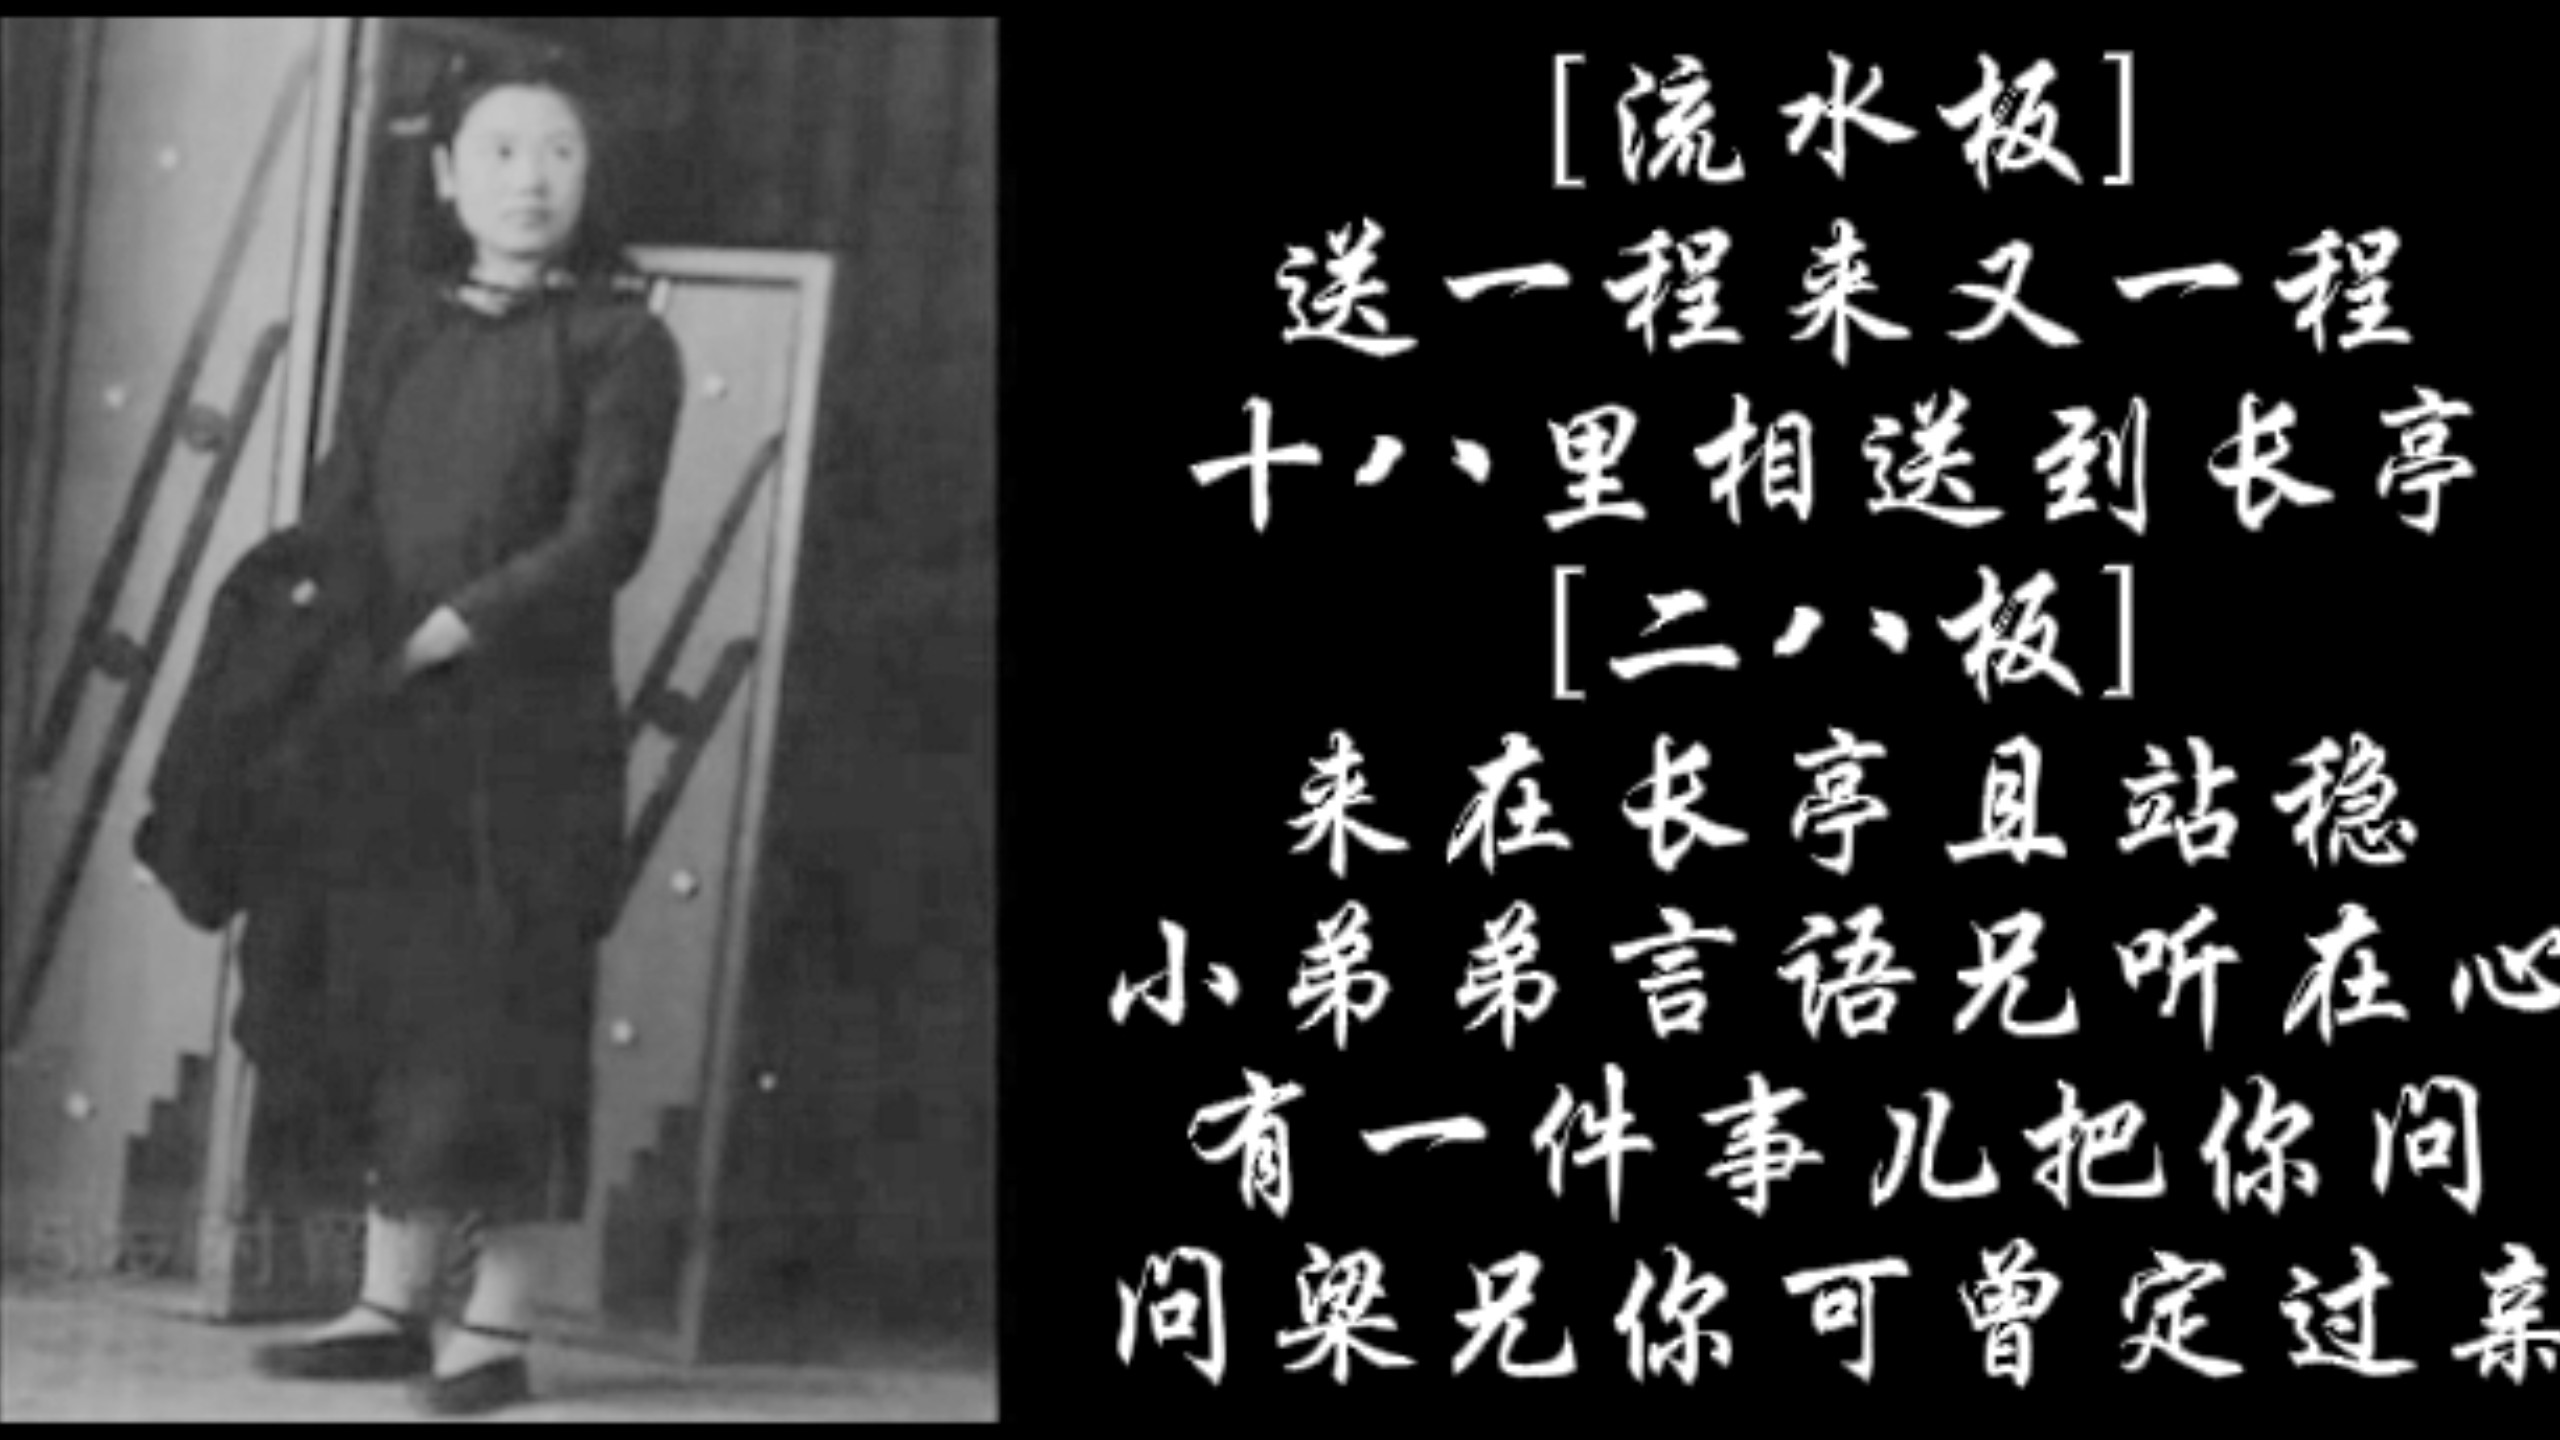 [流水板]
送一程来又一程
十八里相送到长亭
[二八板]
来在长亭且站稳
小弟弟言语兄听在心
有一件事儿把你问
问梁兄你可曾定过亲